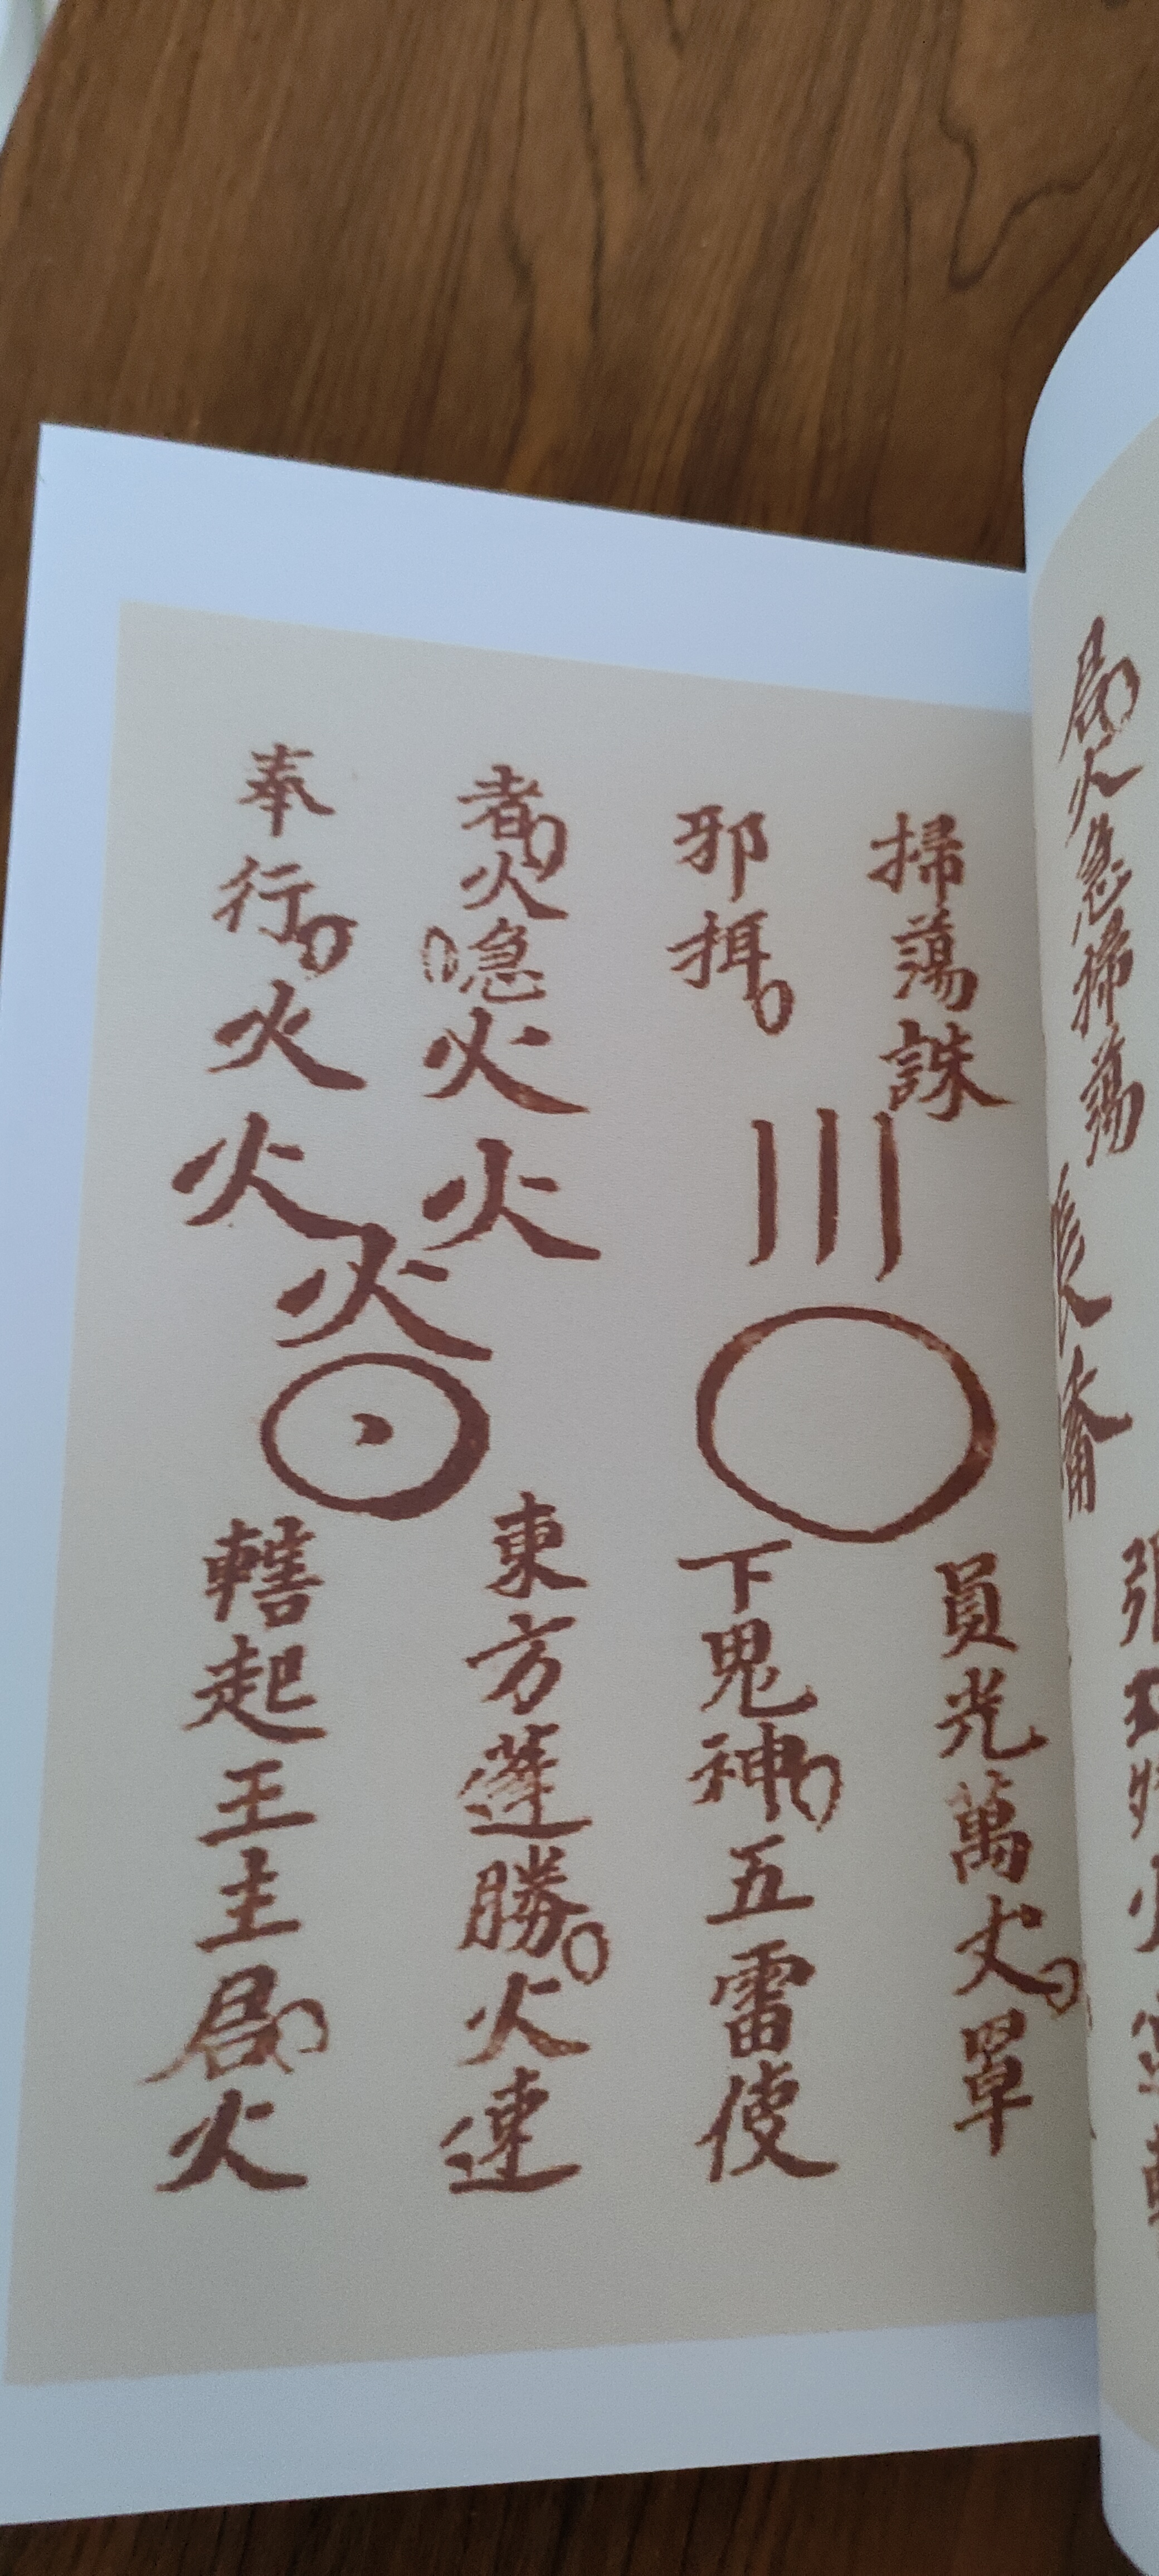 局火急掃蕩
掃蕩誅
邪
者火急火火
奉行火火火
員光萬丈罩
下鬼神五雷使
東方蓬勝火速
轄起王主局火